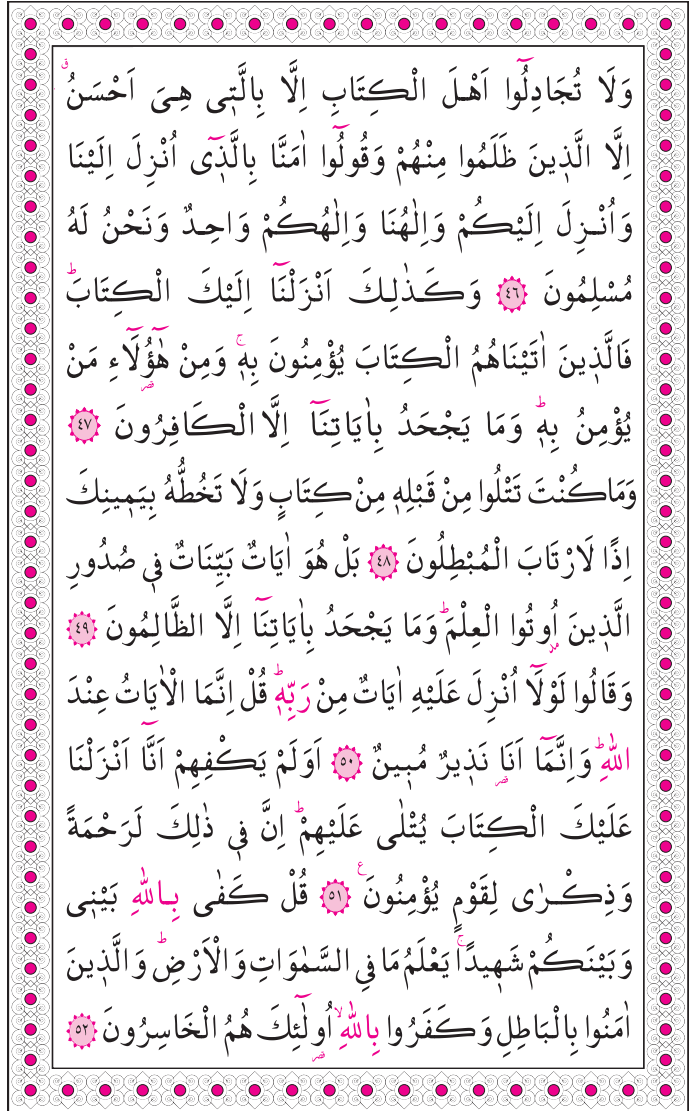 وَلَا تُجَادِلُٓوا اَهْلَ الْكِتَابِ اِلَّا بِالَّت۪ي هِيَ اَحْسَنُۗ
اِلَّا الَّذ۪ينَ ظَلَمُوا مِنْهُمْ وَقُولُٓوا اٰمَنَّا بِالَّذ۪ٓي اُنْزِلَ اِلَيْنَا
وَاُنْزِلَ اِلَيْكُمْ وَاِلٰهُنَا وَاِلٰهُكُمْ وَاحِدٌ وَنَحْنُ لَهُ
مُسْلِمُونَ ﴿٤٦﴾ وَكَذٰلِكَ اَنْزَلْنَٓا اِلَيْكَ الْكِتَابَۜ
فَالَّذ۪ينَ اٰتَيْنَاهُمُ الْكِتَابَ يُؤْمِنُونَ بِه۪ۚ وَمِنْ هٰٓؤُ۬لَٓاءِ مَنْ
يُؤْمِنُ بِه۪ۜ وَمَا يَجْحَدُ بِاٰيَاتِنَٓا اِلَّا الْكَافِرُونَ ﴿٤٧﴾
وَمَا كُنْتَ تَتْلُوا مِنْ قَبْلِه۪ مِنْ كِتَابٍ وَلَا تَخُطُّهُ بِيَم۪ينِكَ
اِذًا لَارْتَابَ الْمُبْطِلُونَ ﴿٤٨﴾ بَلْ هُوَ اٰيَاتٌ بَيِّنَاتٌ ف۪ي صُدُورِ
الَّذ۪ينَ اُو۫تُوا الْعِلْمَۜ وَمَا يَجْحَدُ بِاٰيَاتِنَٓا اِلَّا الظَّالِمُونَ ﴿٤٩﴾
وَقَالُوا لَوْلَٓا اُنْزِلَ عَلَيْهِ اٰيَاتٌ مِنْ رَبِّه۪ۜ قُلْ اِنَّمَا الْاٰيَاتُ عِنْدَ
اللّٰهِۜ وَاِنَّمَٓا اَنَا۬ نَذ۪يرٌ مُب۪ينٌ ﴿٥٠﴾ اَوَلَمْ يَكْفِهِمْ اَنَّٓا اَنْزَلْنَا
عَلَيْكَ الْكِتَابَ يُتْلٰى عَلَيْهِمْۜ اِنَّ ف۪ي ذٰلِكَ لَرَحْمَةً
وَذِكْرٰى لِقَوْمٍ يُؤْمِنُونَ۟ ﴿٥١﴾ قُلْ كَفٰى بِاللّٰهِ بَيْن۪ي
وَبَيْنَكُمْ شَه۪يدًاۚ يَعْلَمُ مَا فِي السَّمٰوَاتِ وَالْاَرْضِۜ وَالَّذ۪ينَ
اٰمَنُوا بِالْبَاطِلِ وَكَفَرُوا بِاللّٰهِۙ اُو۬لٰٓئِكَ هُمُ الْخَاسِرُونَ ﴿٥٢﴾